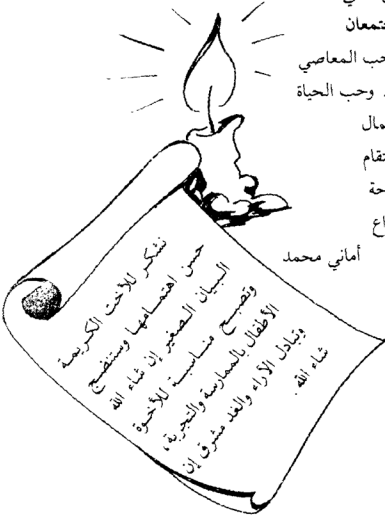 جتمعان
حب المعاصي
وحب الحياة
أماني محمد
نشكر للأخت الكريمة
حسن اهتمامها وستنضج
البيان الصغير إن شاء الله
وتصبح مناسبة للأخوة
الأطفال بالممارسة والتجربة،
وتبادل الآراء والغد مشرق إن
شاء الله.